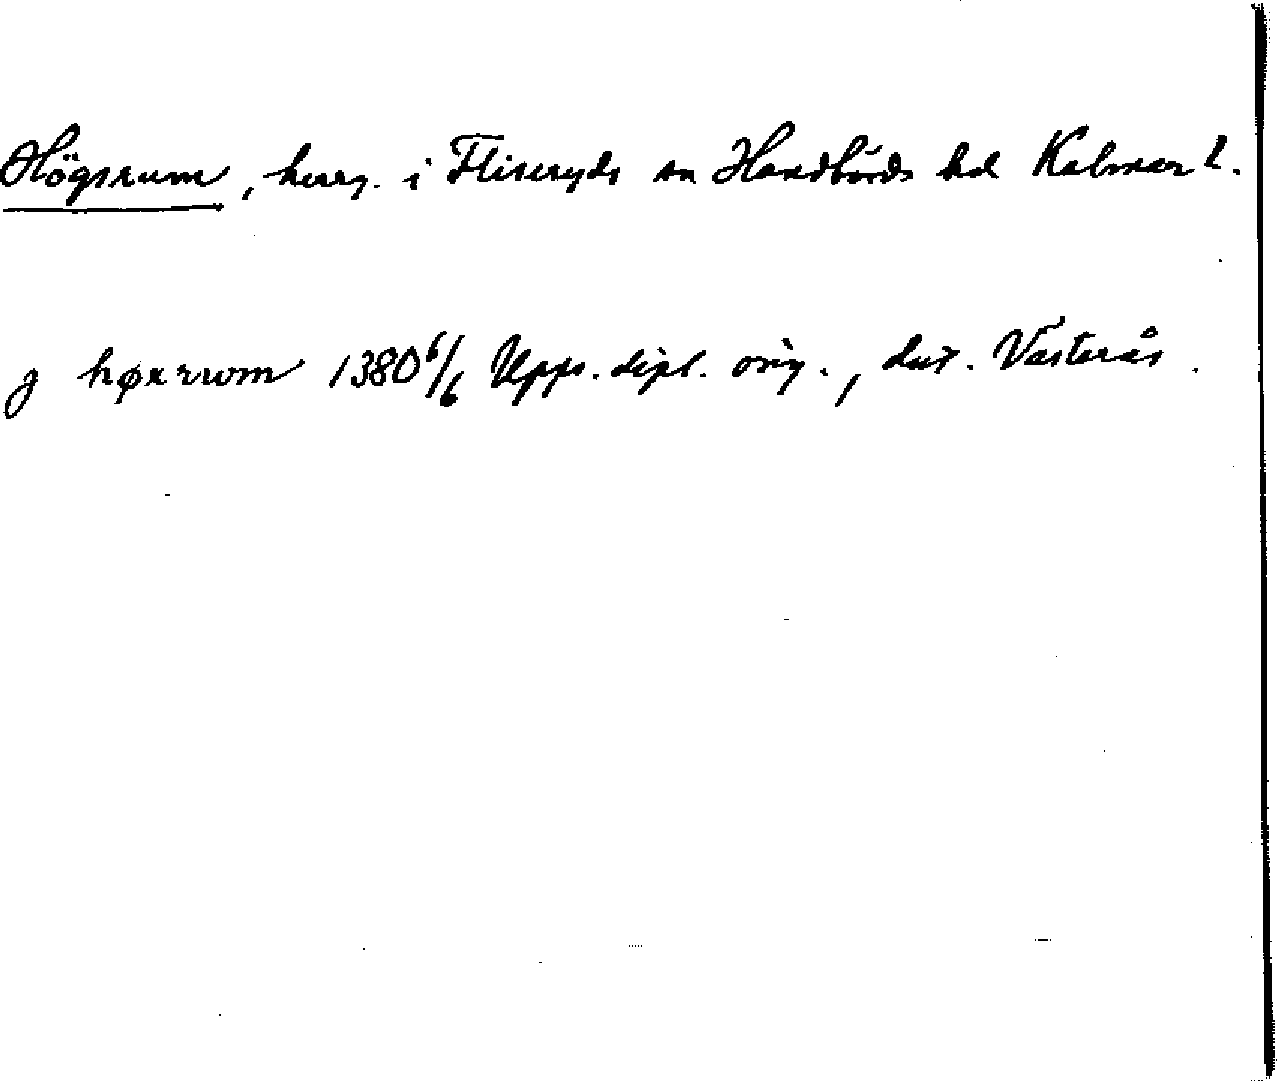 Högsrum, herrg. i Fliseryds sn Handbörds hd Kalmar l.
j høxrwm 1380 6/6 Upps. dipl. orig., dat. Västerås.